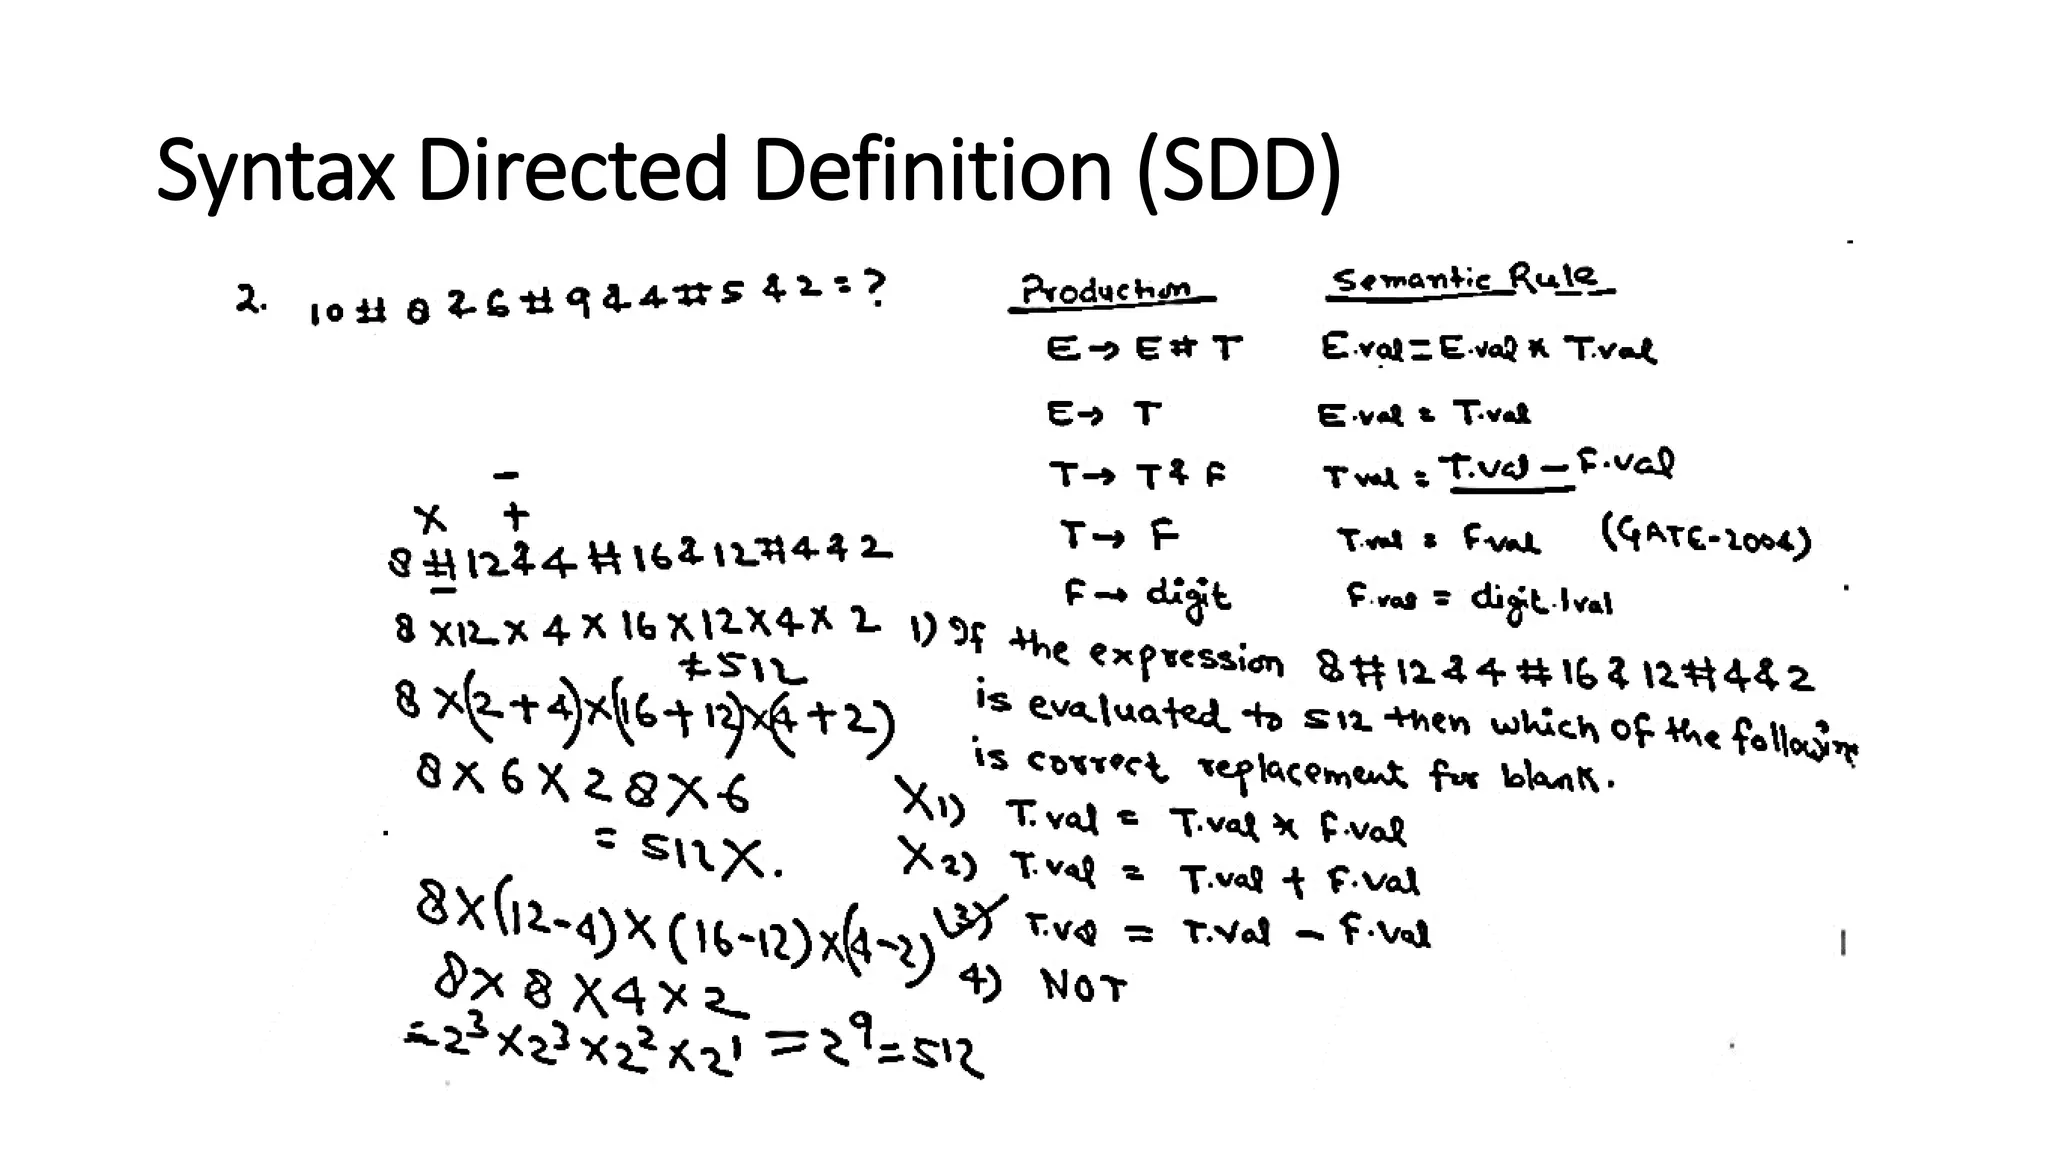 Syntax Directed Definition (SDD)
2. 10 # 8 & 6 # 9 & 4 # 5 & 2 = ?
Production Semantic Rule
E → E # T E.val = E.val * T.val
E → T E.val = T.val
T → T & F T.val = T.val - F.val
T → F T.val = F.val (GATE-2004)
F → digit F.val = digit.lval
-
X +
8 # 12 & 4 # 16 & 12 # 4 & 2
8 X 12 X 4 X 16 X 12 X 4 X 2
≠ 512
8 X (2 + 4) X (16 + 12) X (4 + 2)
8 X 6 X 28 X 6
= 512 X.
8 X (12 - 4) X (16 - 12) X (4 - 2)
8 X 8 X 4 X 2
= 2³ X 2³ X 2² X 2¹ = 2⁹ = 512
1) If the expression 8 # 12 & 4 # 16 & 12 # 4 & 2
is evaluated to 512 then which of the following
is correct replacement for blank.
X 1) T.val = T.val * F.val
X 2) T.val = T.val + F.val
3) T.val = T.val - F.val
4) NOT